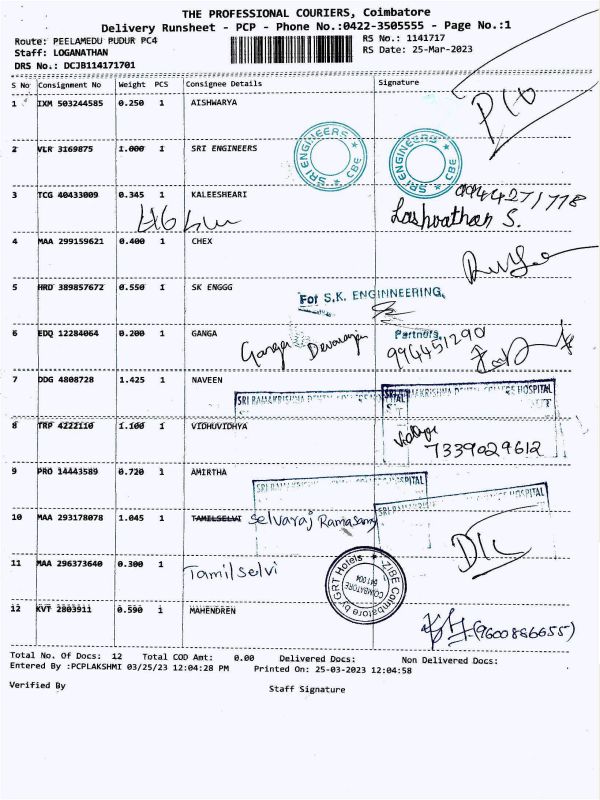 THE PROFESSIONAL COURIERS, Coimbatore
Delivery Runsheet - PCP - Phone No.:0422-3505555 - Page No.:1
Route: PEELAMEDU PUDUR PC4
RS No.: 1141717
Staff: LOGANATHAN
RS Date: 25-Mar-2023
DRS No.: DCJB114171701
S No Consignment No Weight PCS Consignee Details Signature
1 IXM 503244585 0.250 1 AISHWARYA
2 VLR 3169875 1.000 1 SRI ENGINEERS
SRI ENGINEERS ★ CBE ★
SRI ENGINEERS ★ CBE ★
3 TCG 40433009 0.345 1 KALEESHEARI
9944271778
Lashvathan S.
4 MAA 299159621 0.400 1 CHEX
5 HRD 389857672 0.550 1 SK ENGGG
For S.K. ENGINNEERING,
Partners,
6 EDQ 12284064 0.200 1 GANGA
Ganga Devarajan
994451290
7 DDG 4808728 1.425 1 NAVEEN
SRI RAMAKRISHNA DENTAL COLLEGE HOSPITAL
SRI RAMAKRISHNA DENTAL COLLEGE HOSPITAL
8 TRP 4222110 1.100 1 VIDHUVIDHYA
Vidhya
7339029612
9 PRO 14443589 0.720 1 AMIRTHA
10 MAA 293178078 1.045 1 TAMILSELVI Selvaraj Ramasamy
11 MAA 296373640 0.300 1
Tamilselvi
ZIBE Coimbatore by GRT Hotels ★
COIMBATORE
641 004
12 KVT 2803911 0.590 1 MAHENDREN
(9600886655)
Total No. Of Docs: 12 Total COD Amt: 0.00 Delivered Docs: Non Delivered Docs:
Entered By :PCPLAKSHMI 03/25/23 12:04:28 PM Printed On: 25-03-2023 12:04:58
Verified By
Staff Signature